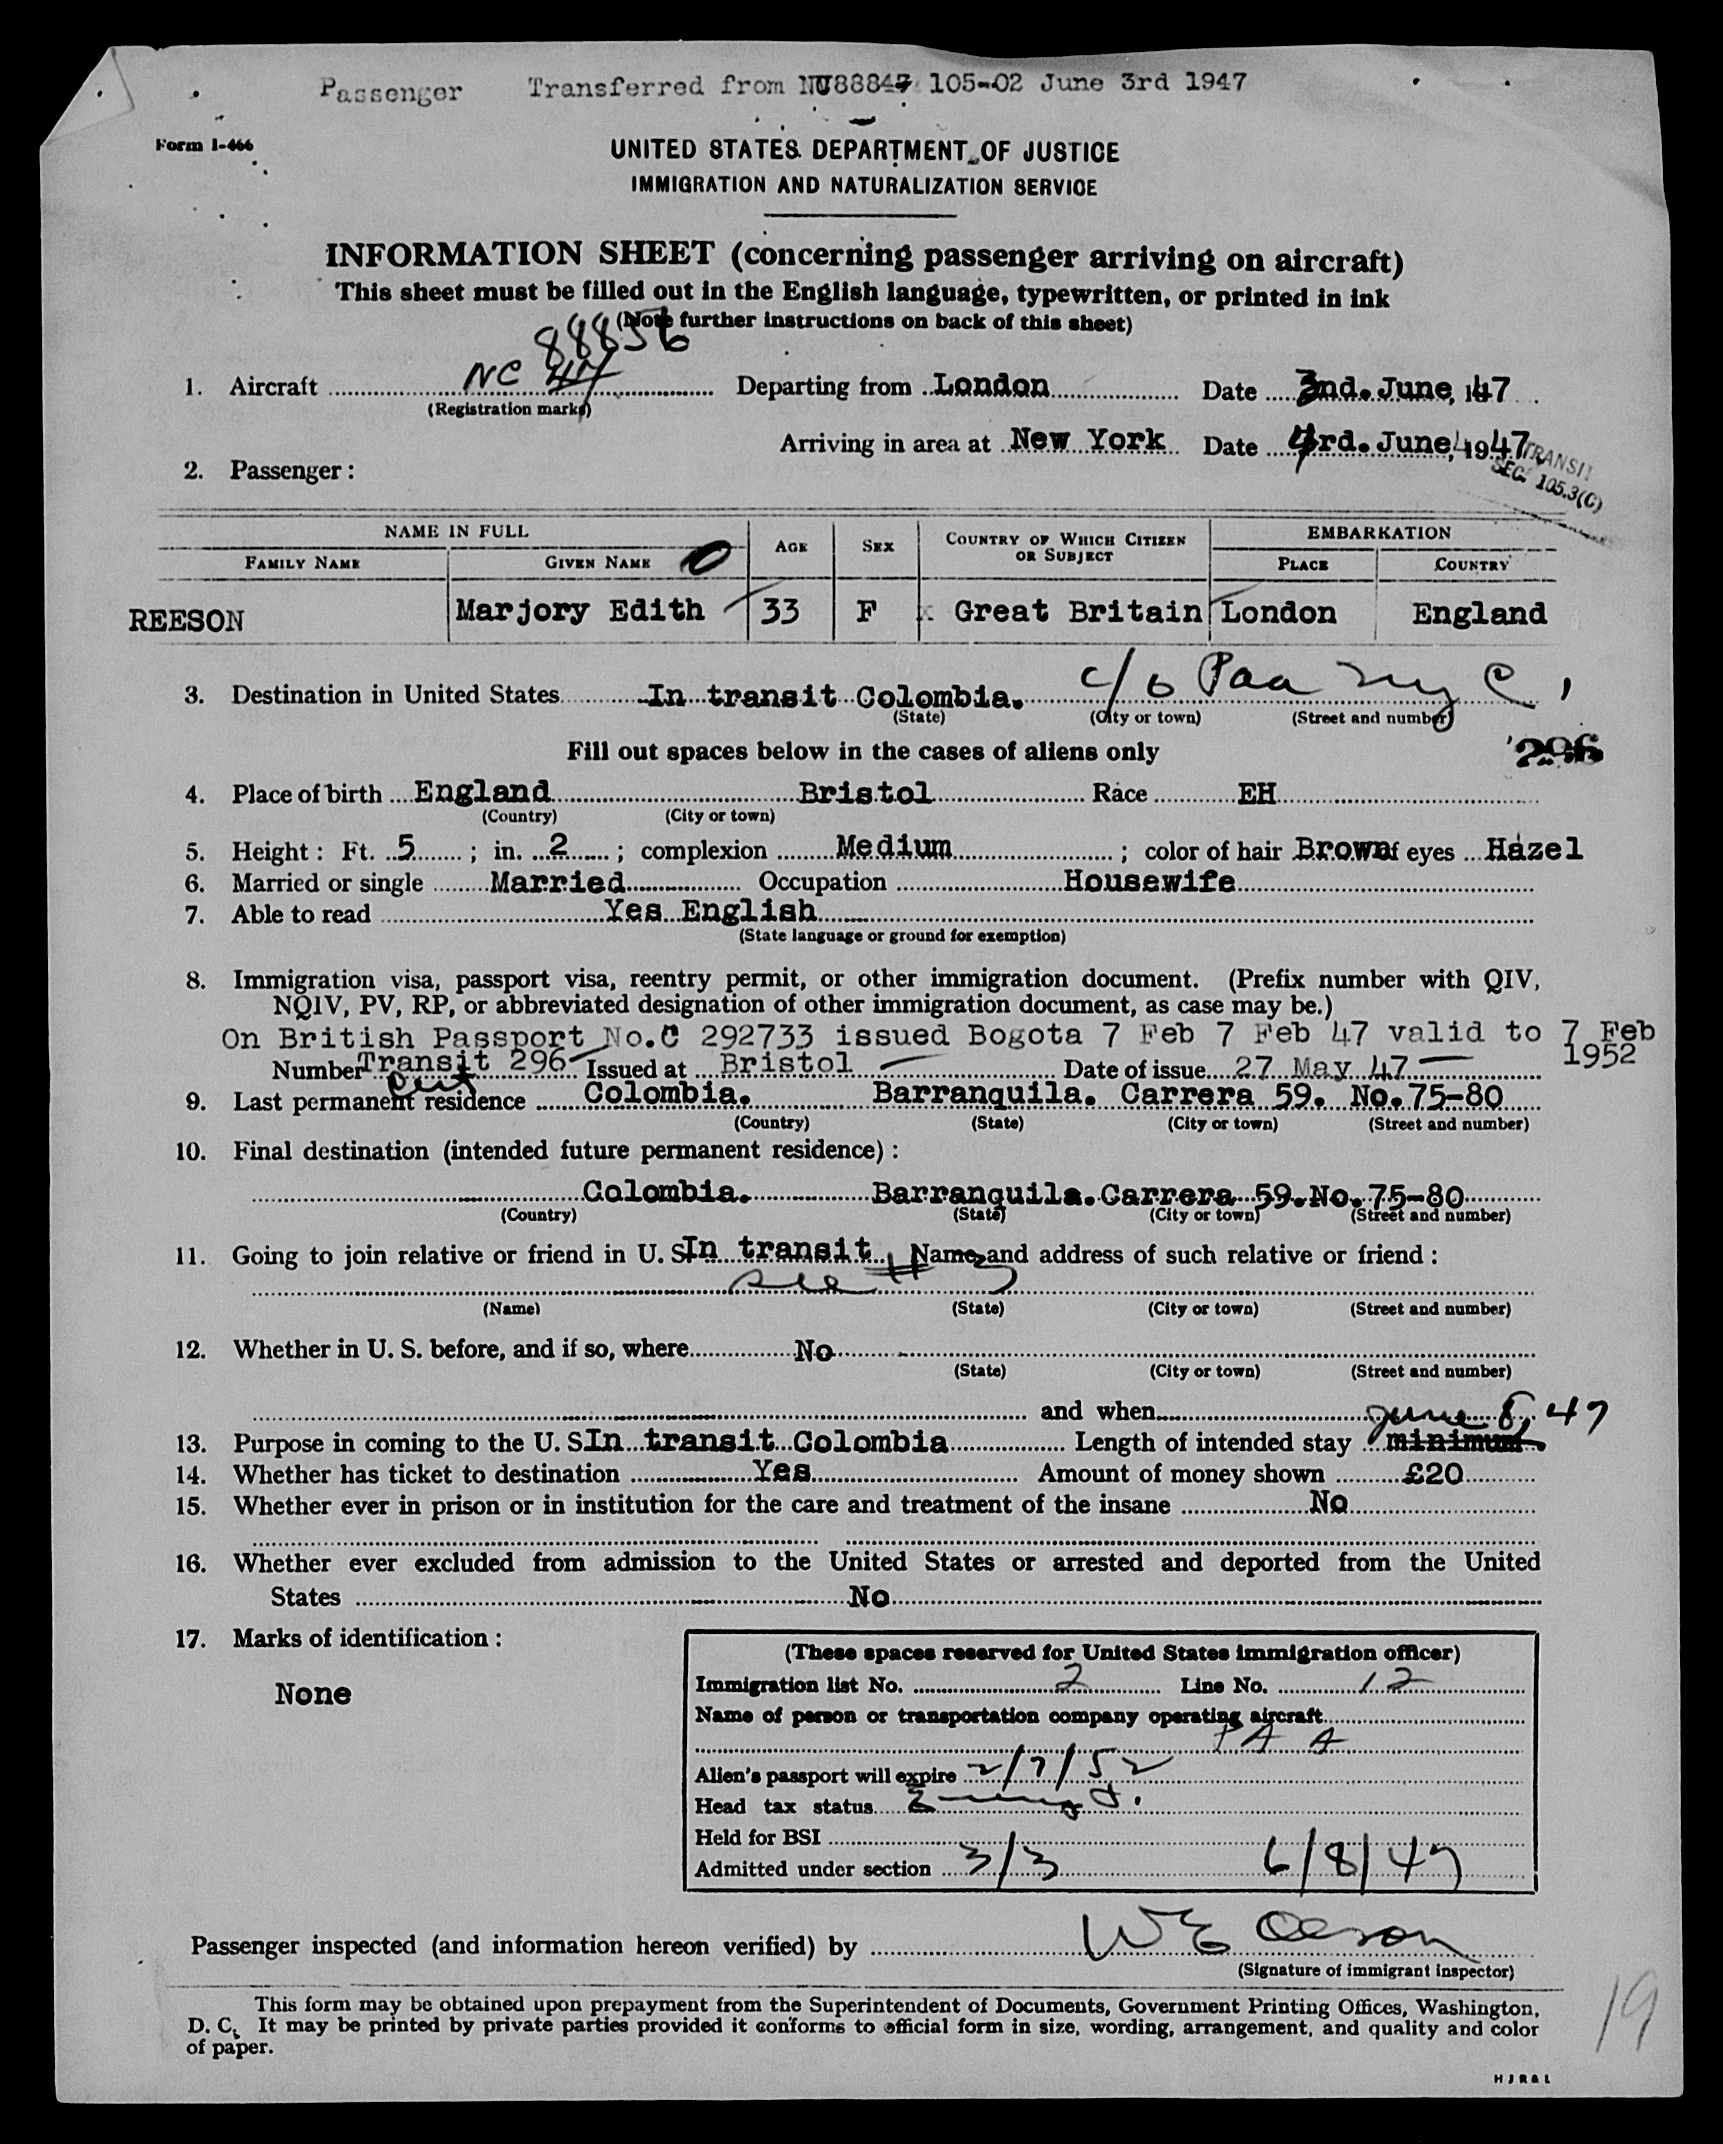 Passenger Transferred from NC88847 105-02 June 3rd 1947
Form I-466
UNITED STATES DEPARTMENT OF JUSTICE
IMMIGRATION AND NATURALIZATION SERVICE
INFORMATION SHEET (concerning passenger arriving on aircraft)
This sheet must be filled out in the English language, typewritten, or printed in ink
(Note further instructions on back of this sheet)
88856
1. Aircraft NC Departing from London Date 3nd. June, 147
(Registration marks)
Arriving in area at New York Date 4rd. June, 1947
TRANSIT
SEC. 105.3(C)
2. Passenger:
NAME IN FULL AGE SEX COUNTRY OF WHICH CITIZEN OR SUBJECT EMBARKATION
FAMILY NAME GIVEN NAME PLACE COUNTRY
REESON Marjory Edith 33 F x Great Britain London England
3. Destination in United States In transit Colombia. c/o Paa NYC
(State) (City or town) (Street and number)
Fill out spaces below in the cases of aliens only
296
4. Place of birth England Bristol Race EH
(Country) (City or town)
5. Height: Ft. 5; in. 2; complexion Medium; color of hair Brown of eyes Hazel
6. Married or single Married Occupation Housewife
7. Able to read Yes English
(State language or ground for exemption)
8. Immigration visa, passport visa, reentry permit, or other immigration document. (Prefix number with QIV,
NQIV, PV, RP, or abbreviated designation of other immigration document, as case may be.)
On British Passport No.C 292733 issued Bogota 7 Feb 7 Feb 47 valid to 7 Feb
1952
Number Transit 296 Issued at Bristol Date of issue 27 May 47
cert
9. Last permanent residence Colombia. Barranquila. Carrera 59. No.75-80
(Country) (State) (City or town) (Street and number)
10. Final destination (intended future permanent residence):
Colombia. Barranquila. Carrera 59. No. 75-80
(Country) (State) (City or town) (Street and number)
11. Going to join relative or friend in U. S. In transit Name and address of such relative or friend:
see #3
(Name) (State) (City or town) (Street and number)
12. Whether in U. S. before, and if so, where No
(State) (City or town) (Street and number)
and when
June 8, 47
13. Purpose in coming to the U. S. In transit Colombia Length of intended stay minimum
14. Whether has ticket to destination Yes Amount of money shown £20
15. Whether ever in prison or in institution for the care and treatment of the insane No
16. Whether ever excluded from admission to the United States or arrested and deported from the United
States No
17. Marks of identification:
None
(These spaces reserved for United States immigration officer)
Immigration list No. 2 Line No. 12
Name of person or transportation company operating aircraft
PAA
Alien's passport will expire 2/7/52
Head tax status
Held for BSI
Admitted under section 3/3 6/8/47
Passenger inspected (and information hereon verified) by W E Olson
(Signature of immigrant inspector)
This form may be obtained upon prepayment from the Superintendent of Documents, Government Printing Offices, Washington,
D. C. It may be printed by private parties provided it conforms to official form in size, wording, arrangement, and quality and color
of paper.
19
H J R & L